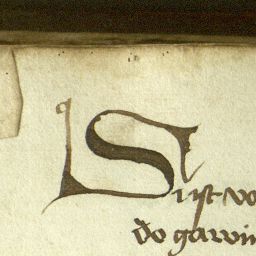 Sust vo
do gawin